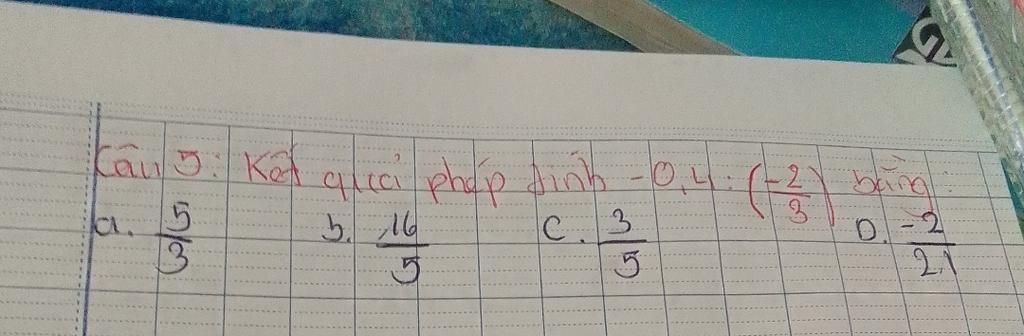 Câu 5: Kết quả phép tính -0,4 : (-2/3) bằng:
a. 5/3 b. 16/5 C. 3/5 D. -2/21